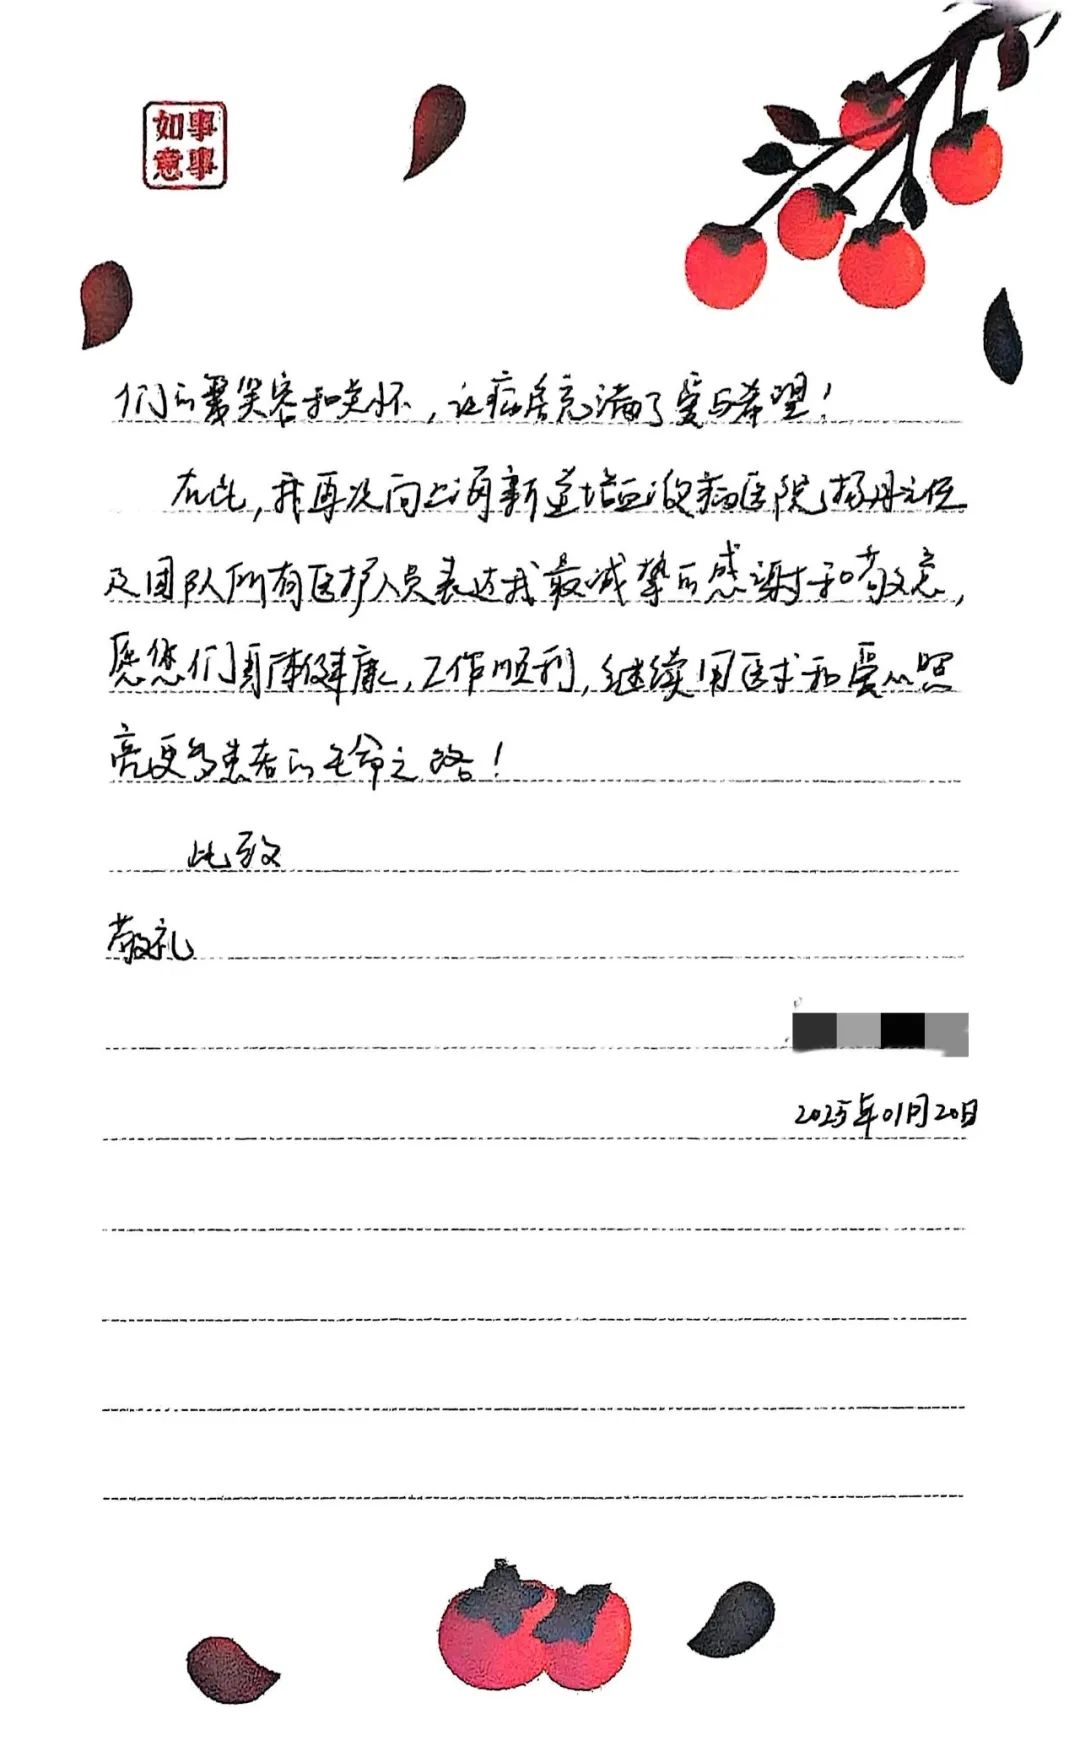 事事
如意
们的笑容和关怀，让病房充满了爱与希望！
在此，我再次向上海新道培血液病医院杨丹主任
及团队所有医护人员表达我最诚挚的感谢和敬意，
愿您们身体健康，工作顺利，继续用医术和爱心照
亮更多患者的生命之路！
此致
敬礼
2025年01月20日